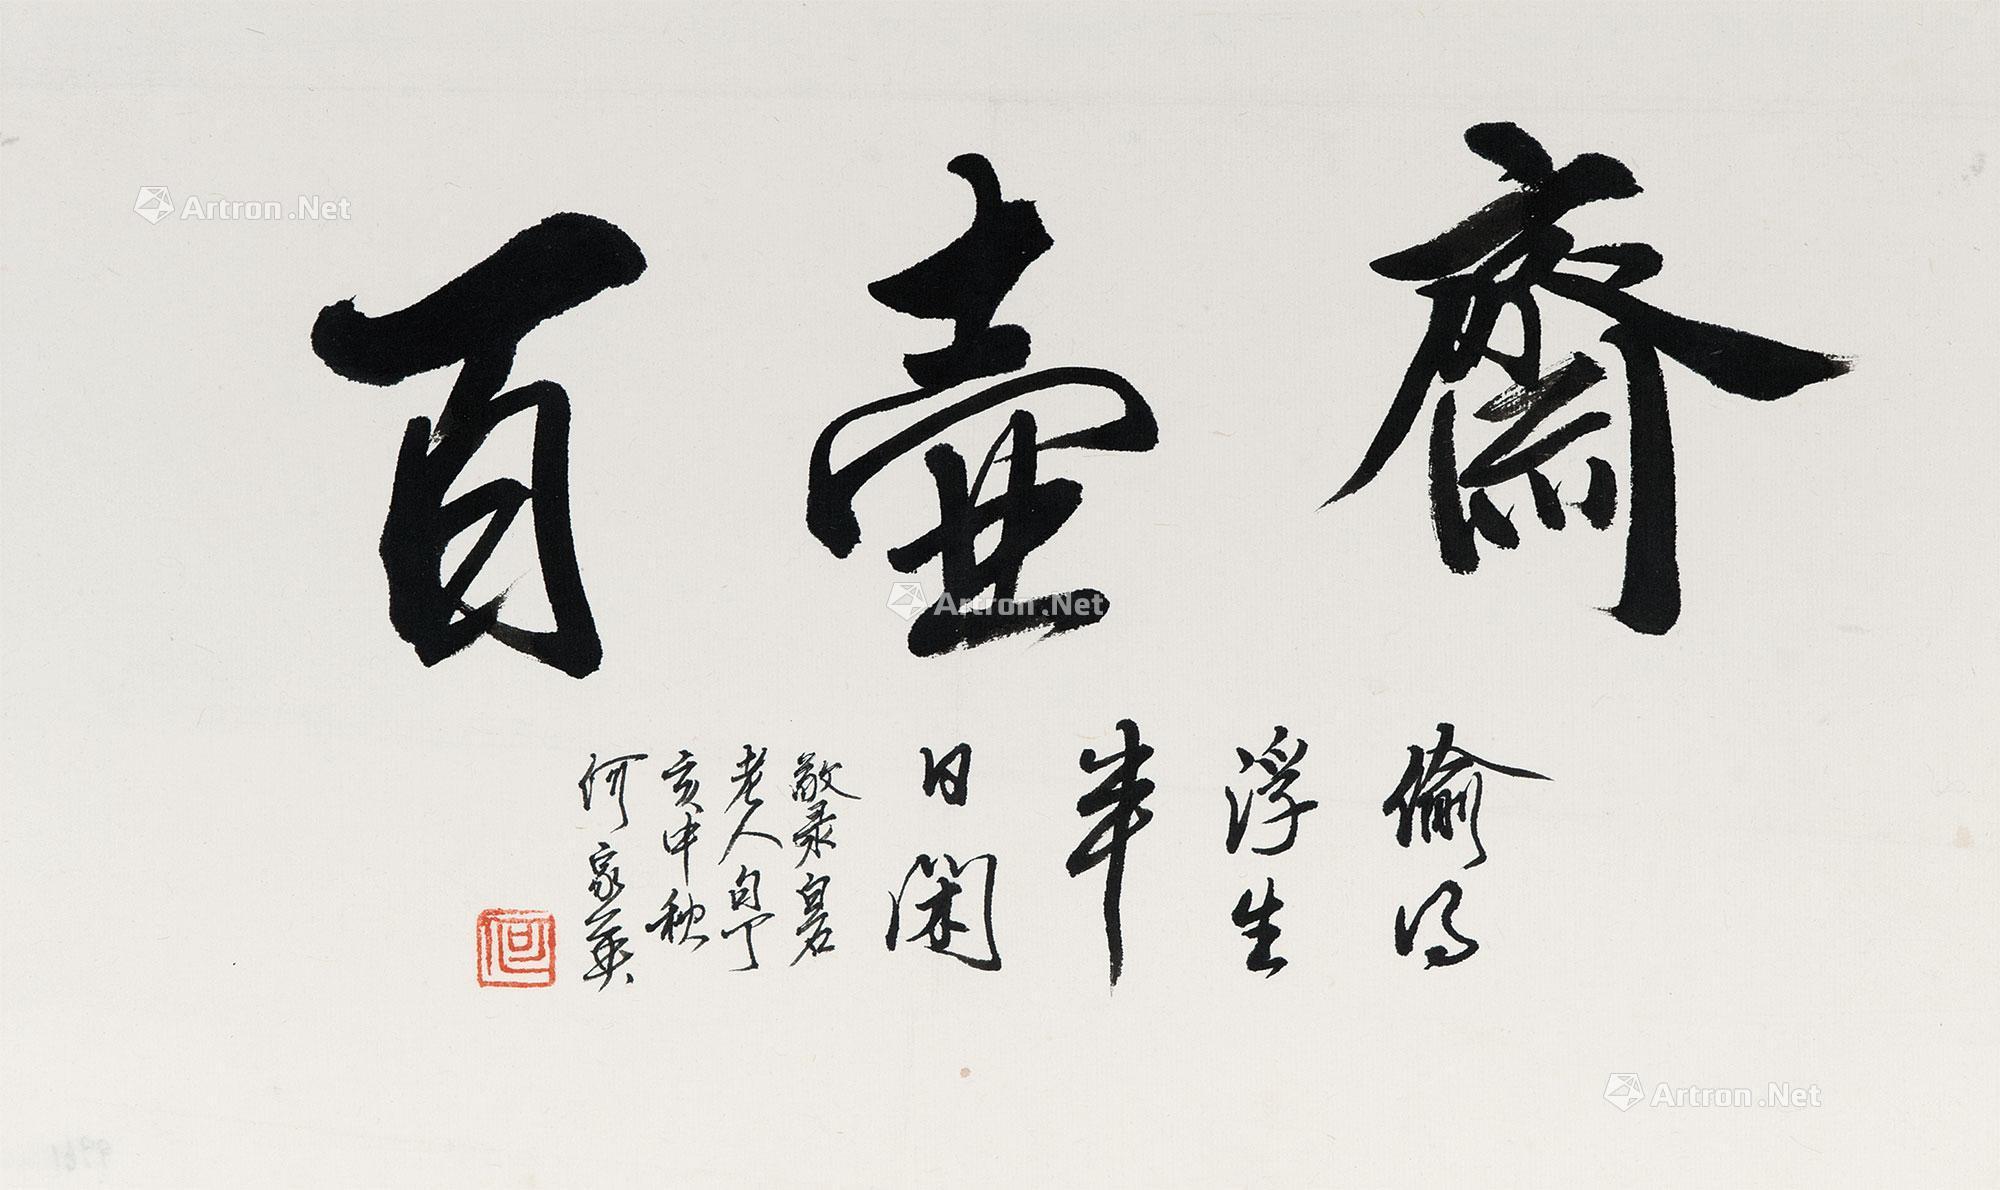 百壺齋
偷得
浮生
半
日閑
敬录白石
老人句丁
亥中秋
何家英
何
Artron.Net
Artron.Net
Artron.Net